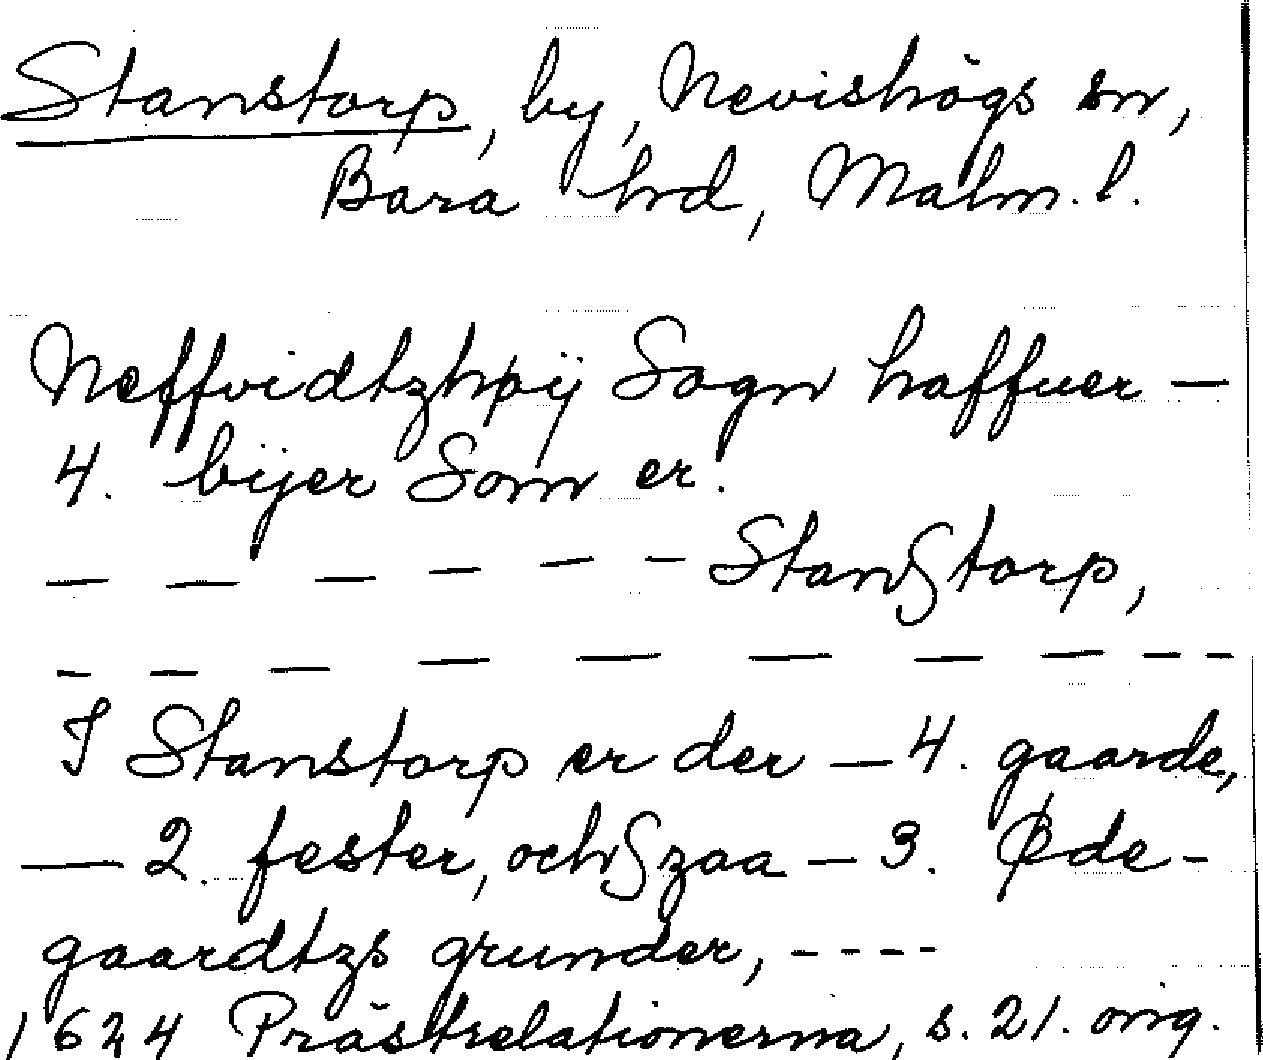 Stanstorp, by, Nevishögs sn,
Bara hd, Malm. l.
Neffvidtzhøÿ Sogn haffuer —
4. bijer Som er.
— — — — — — StanStorp,
— — — — — — — — — —
I Stanstorp er der — 4. gaarde,
— 2. fester, och Szaa — 3. Øde-
gaardtzs grunder, - - - -
1624 Prästrelationerna, s. 21. orig.